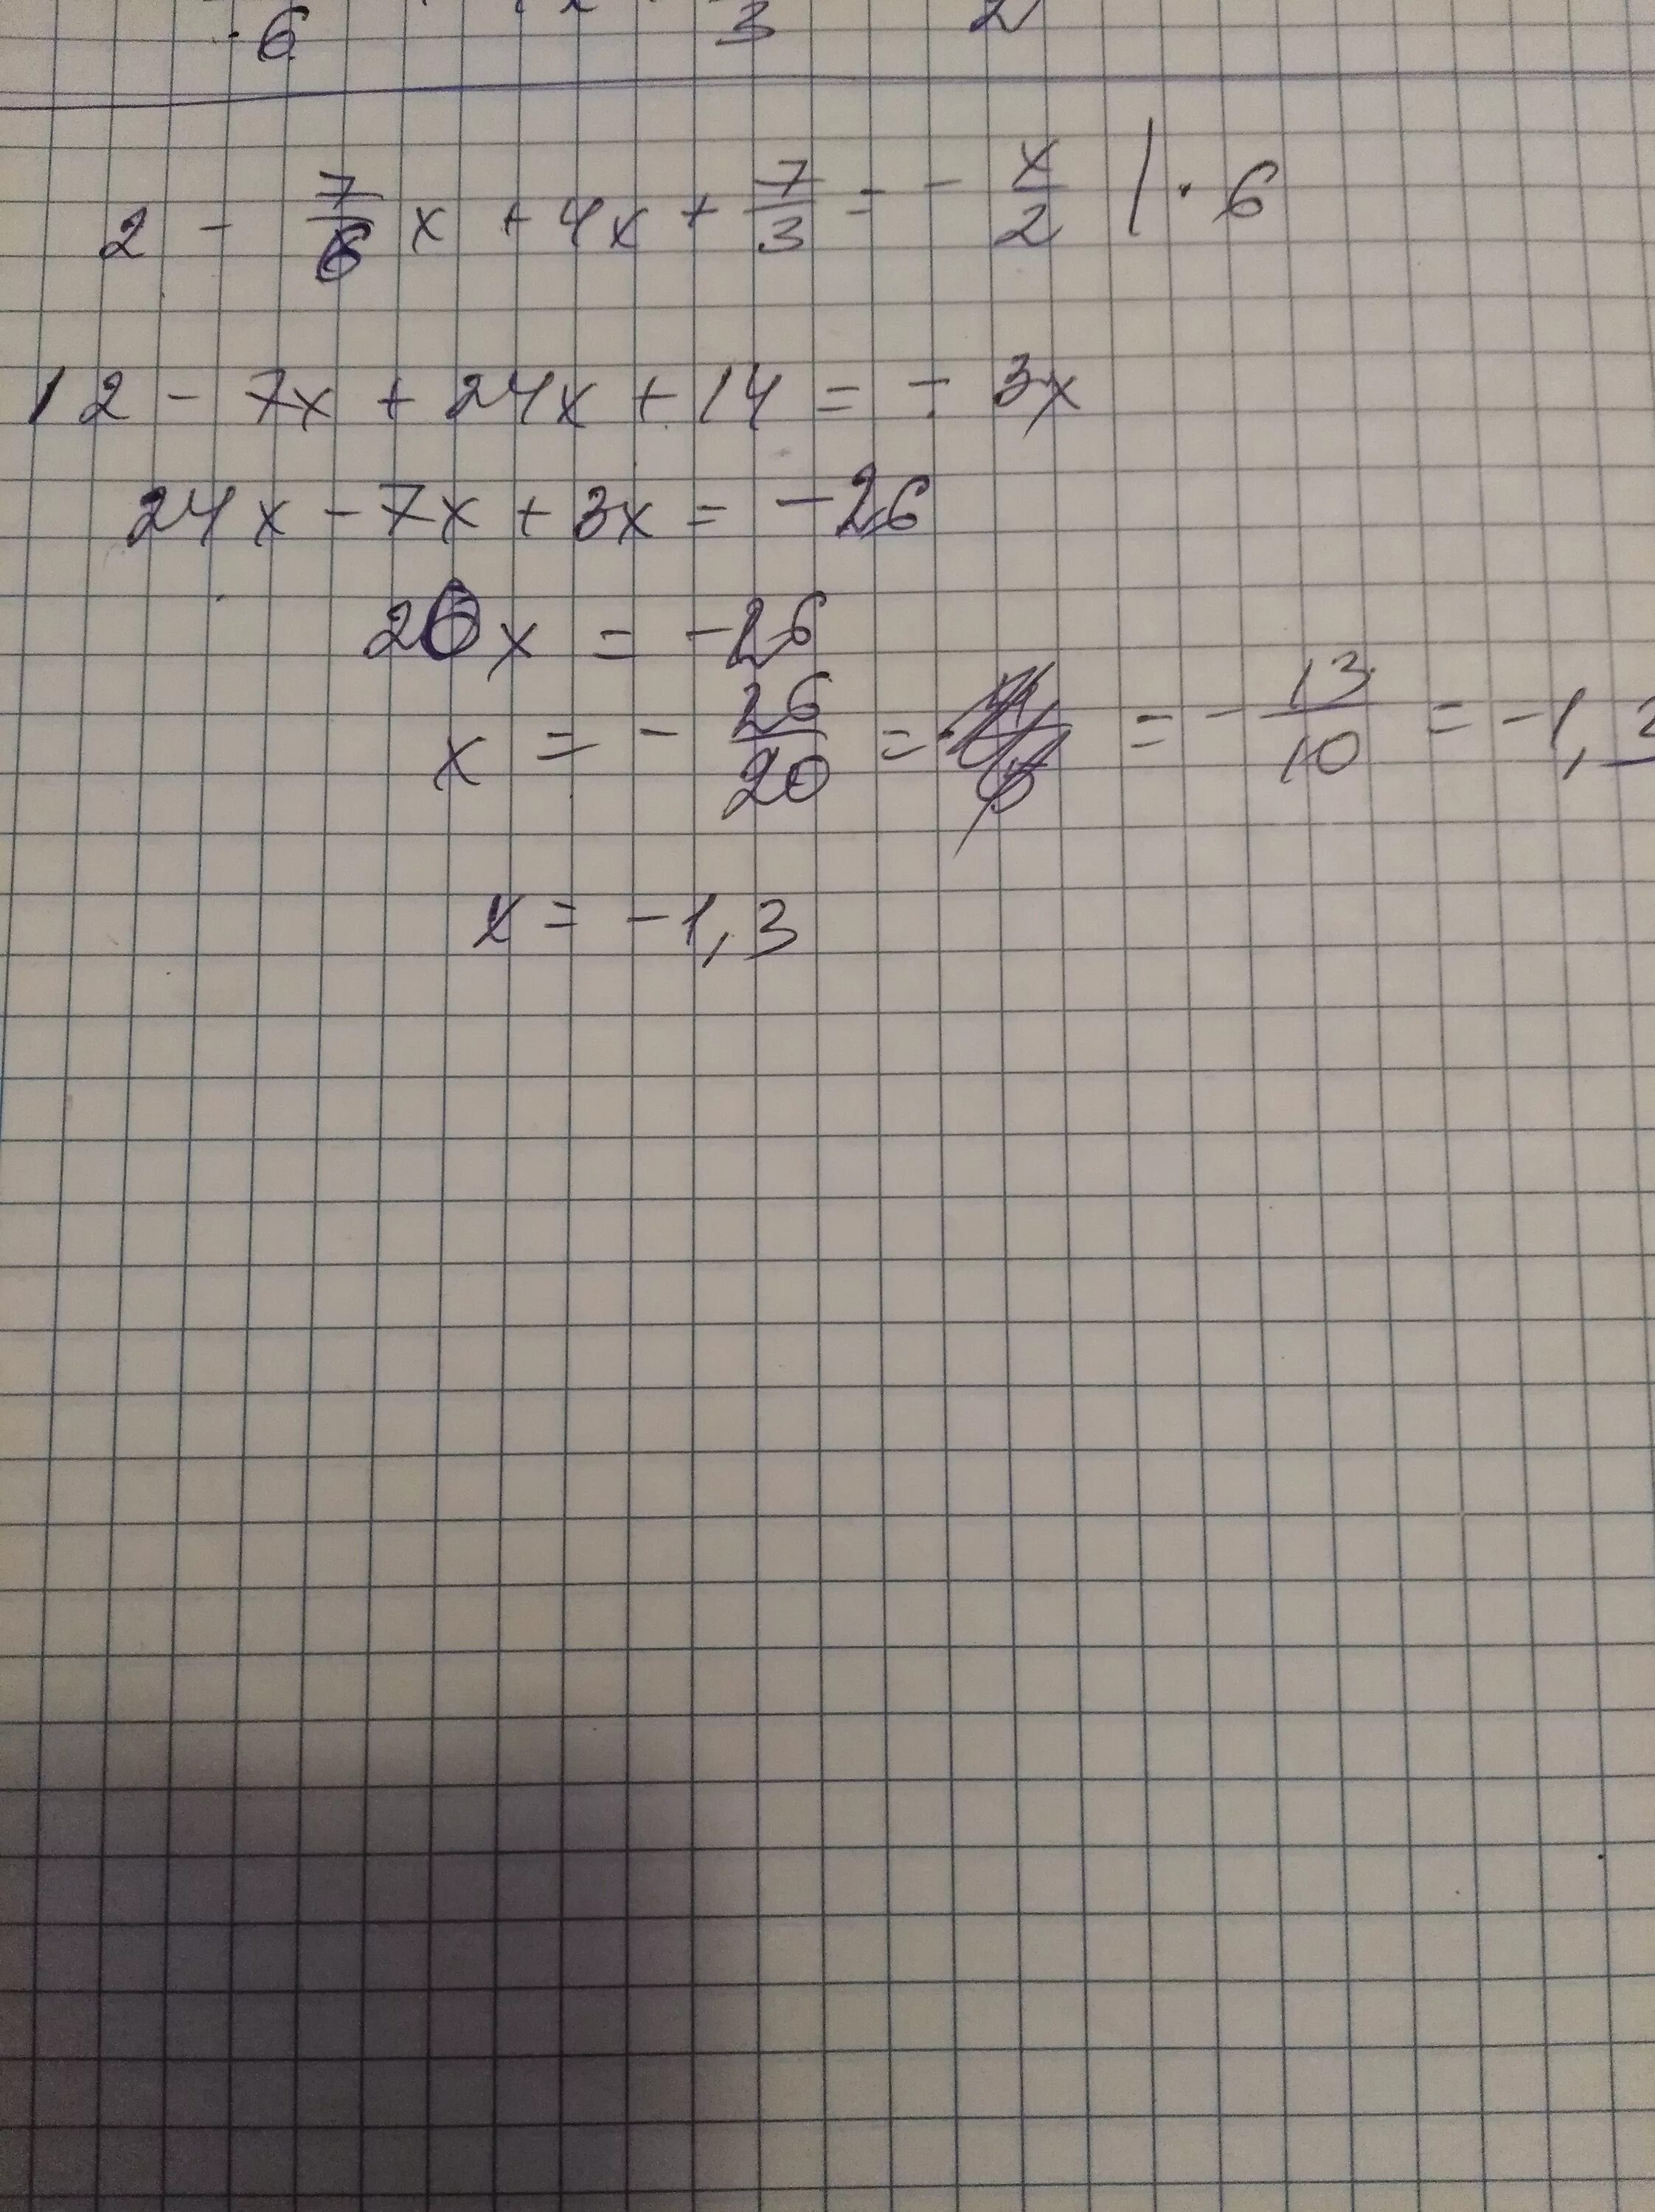 6 3 2
2 - 7/6 x + 4x + 7/3 = - x/2 | · 6
12 - 7x + 24x + 14 = - 3x
24x - 7x + 3x = -26
20x = -26
x = - 26/20 = = - 13/10 = -1,3
x = -1,3